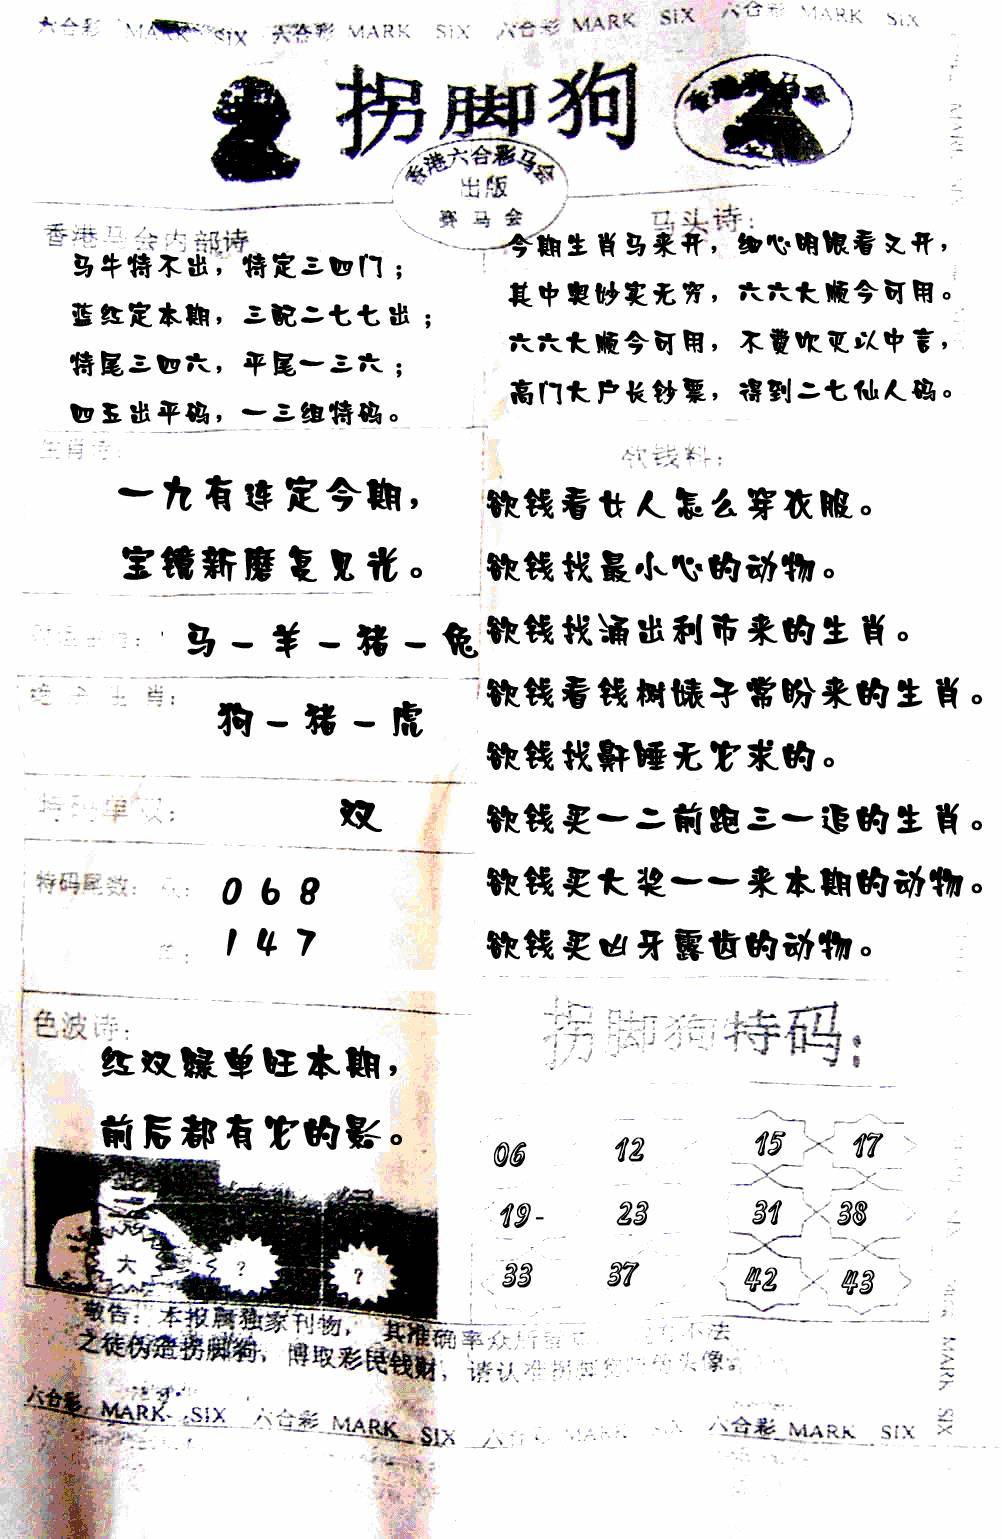 六合彩 MARK SIX 六合彩 MARK SIX 六合彩 MARK SIX 六合彩 MARK SIX
拐脚狗
香港六合彩马会
出版
赛马会
香港马会内部诗
马牛特不出，特定三四门；
蓝红定本期，三配二七七出；
特尾三四六，平尾一三六；
四五出平码，一三组特码。
马头诗：
今期生肖马来开，细心明眼看又开，
其中奥妙实无穷，六六大顺今可用。
六六大顺今可用，不费吹灭以中言，
高门大户长钞票，得到二七仙人码。
生肖诗：
一九有连定今期，
宝镜新磨复见光。
马－羊－猪－兔
生肖：
狗－猪－虎
特码单双：
双
特码尾数：
0 6 8
1 4 7
欲钱料：
欲钱看女人怎么穿衣服。
欲钱找最小心的动物。
欲钱找涌出利市来的生肖。
欲钱看钱树婊子常盼来的生肖。
欲钱找鼾睡无农求的。
欲钱买一二前跑三一追的生肖。
欲钱买大奖一一来本期的动物。
欲钱买凶牙露齿的动物。
色波诗：
红双绿单旺本期，
前后都有农的影。
大 ? ?
拐脚狗特码：
06 12 15 17
19- 23 31 38
33 37 42 43
敬告：本报属独家刊物，其准确率众所 不法
之徒伪造拐脚狗，博取彩民钱财，请认准拐脚 头像。
六合彩 MARK SIX 六合彩 MARK SIX 六合彩 MARK SIX 六合彩 MARK SIX
MARK SIX